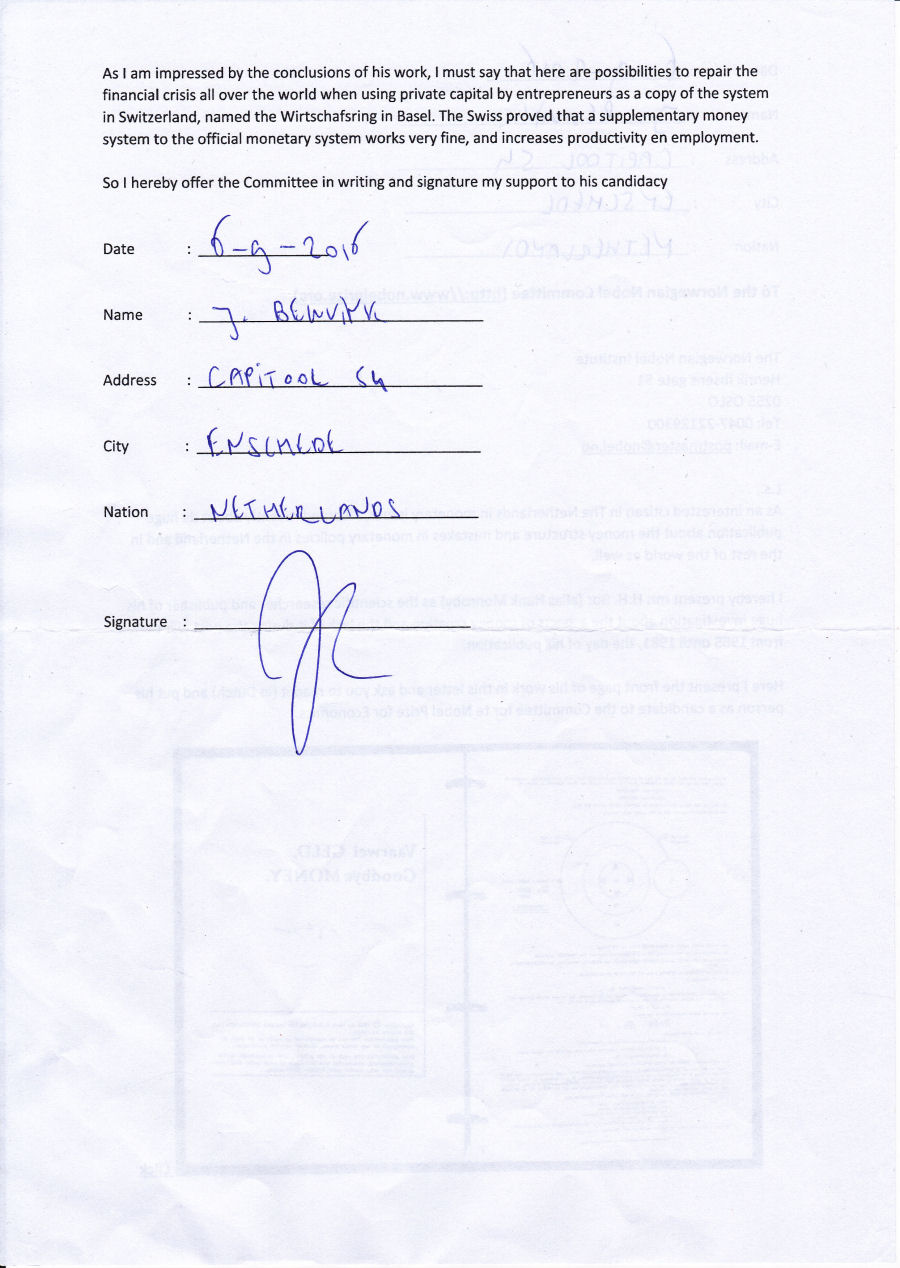 As I am impressed by the conclusions of his work, I must say that here are possibilities to repair the
financial crisis all over the world when using private capital by entrepreneurs as a copy of the system
in Switzerland, named the Wirtschafsring in Basel. The Swiss proved that a supplementary money
system to the official monetary system works very fine, and increases productivity en employment.
So I hereby offer the Committee in writing and signature my support to his candidacy
Date : 6-9-2016
Name : J.
Address : CAPITOOL
City : ENSCHEDE
Nation : NETHERLANDS
Signature :